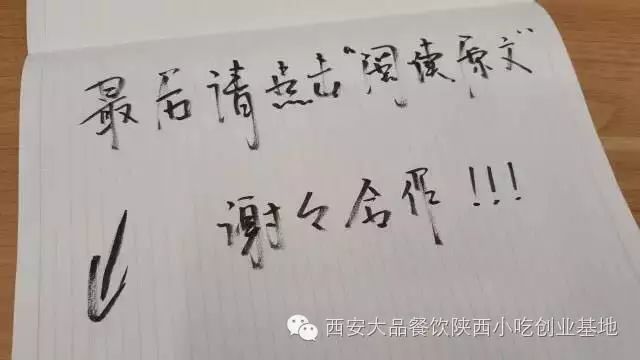 最后请点击“阅读原文”
谢々合作!!!
西安大品餐饮陕西小吃创业基地